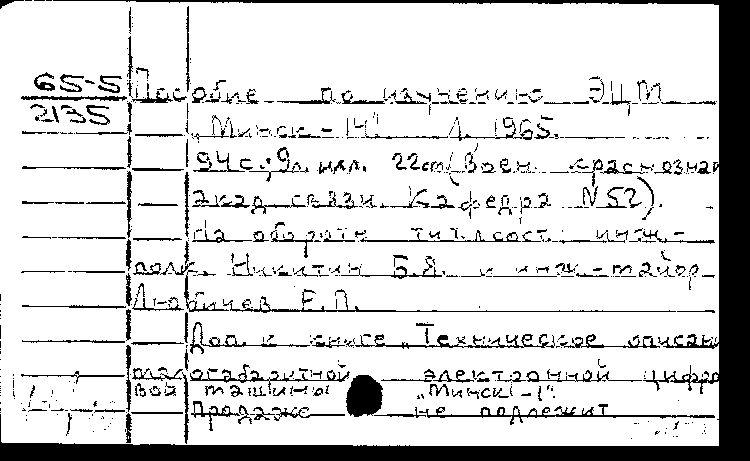 65-5 Пособие по изучению ЭЦМ
2135
„Минск-14". Л. 1965.
94 с.; 9 л. илл. 22 см (Воен. краснознам
акад. связи. Кафедра N 52).
На обороте тит. л. сост.: инж.-
полк. Никитин Б.Я. и инж-майор
Любичев Е.П.
Доп. к книге „Техническое описан
малогабаритной электронной цифро
вой машины „Минск-1".
Продаже не подлежит